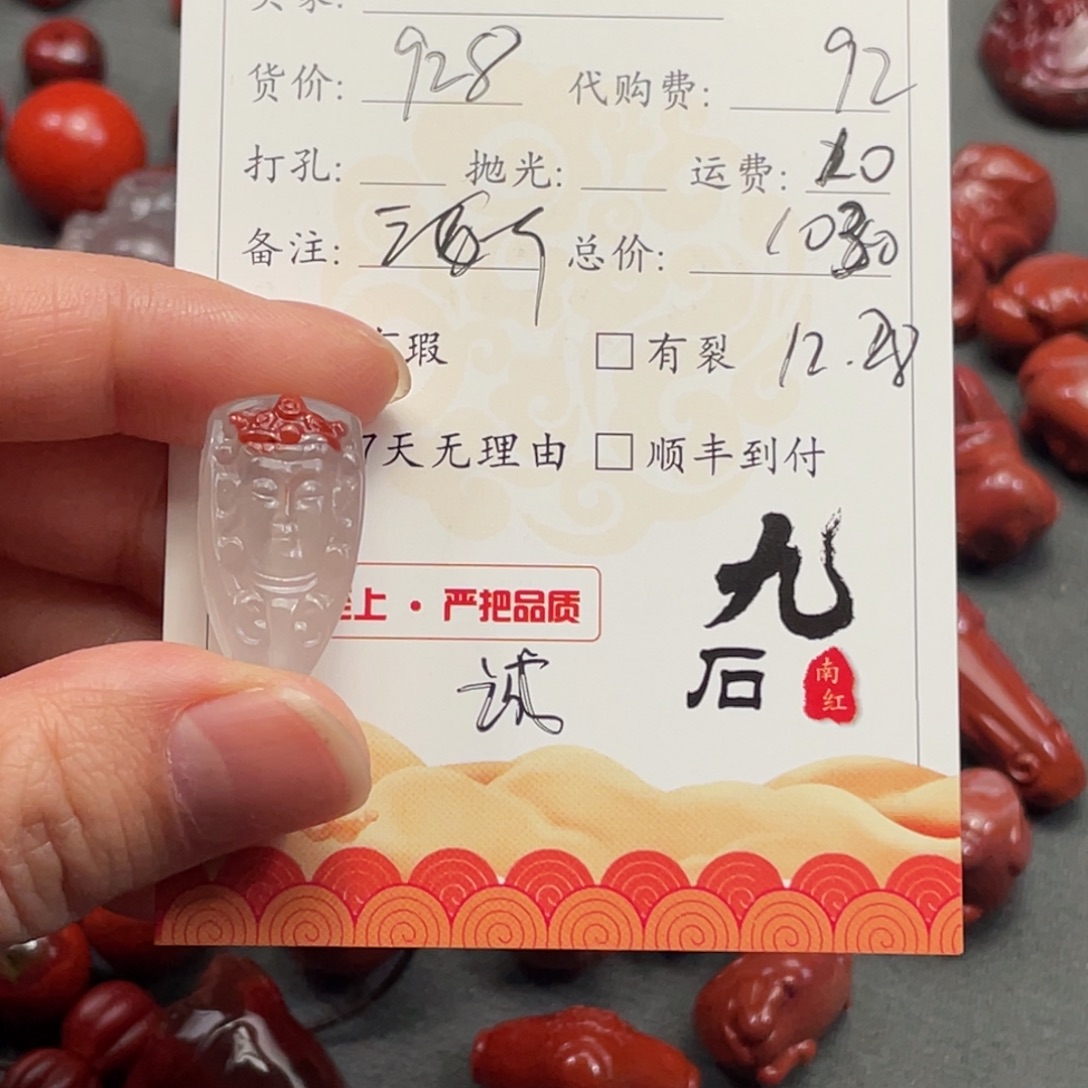 货价: 928 代购费: 92
打孔: 抛光: 运费: 10
备注: 总价: 1030
瑕 □有裂 12.28
7天无理由 □顺丰到付
上·严把品质
九
石
南
红